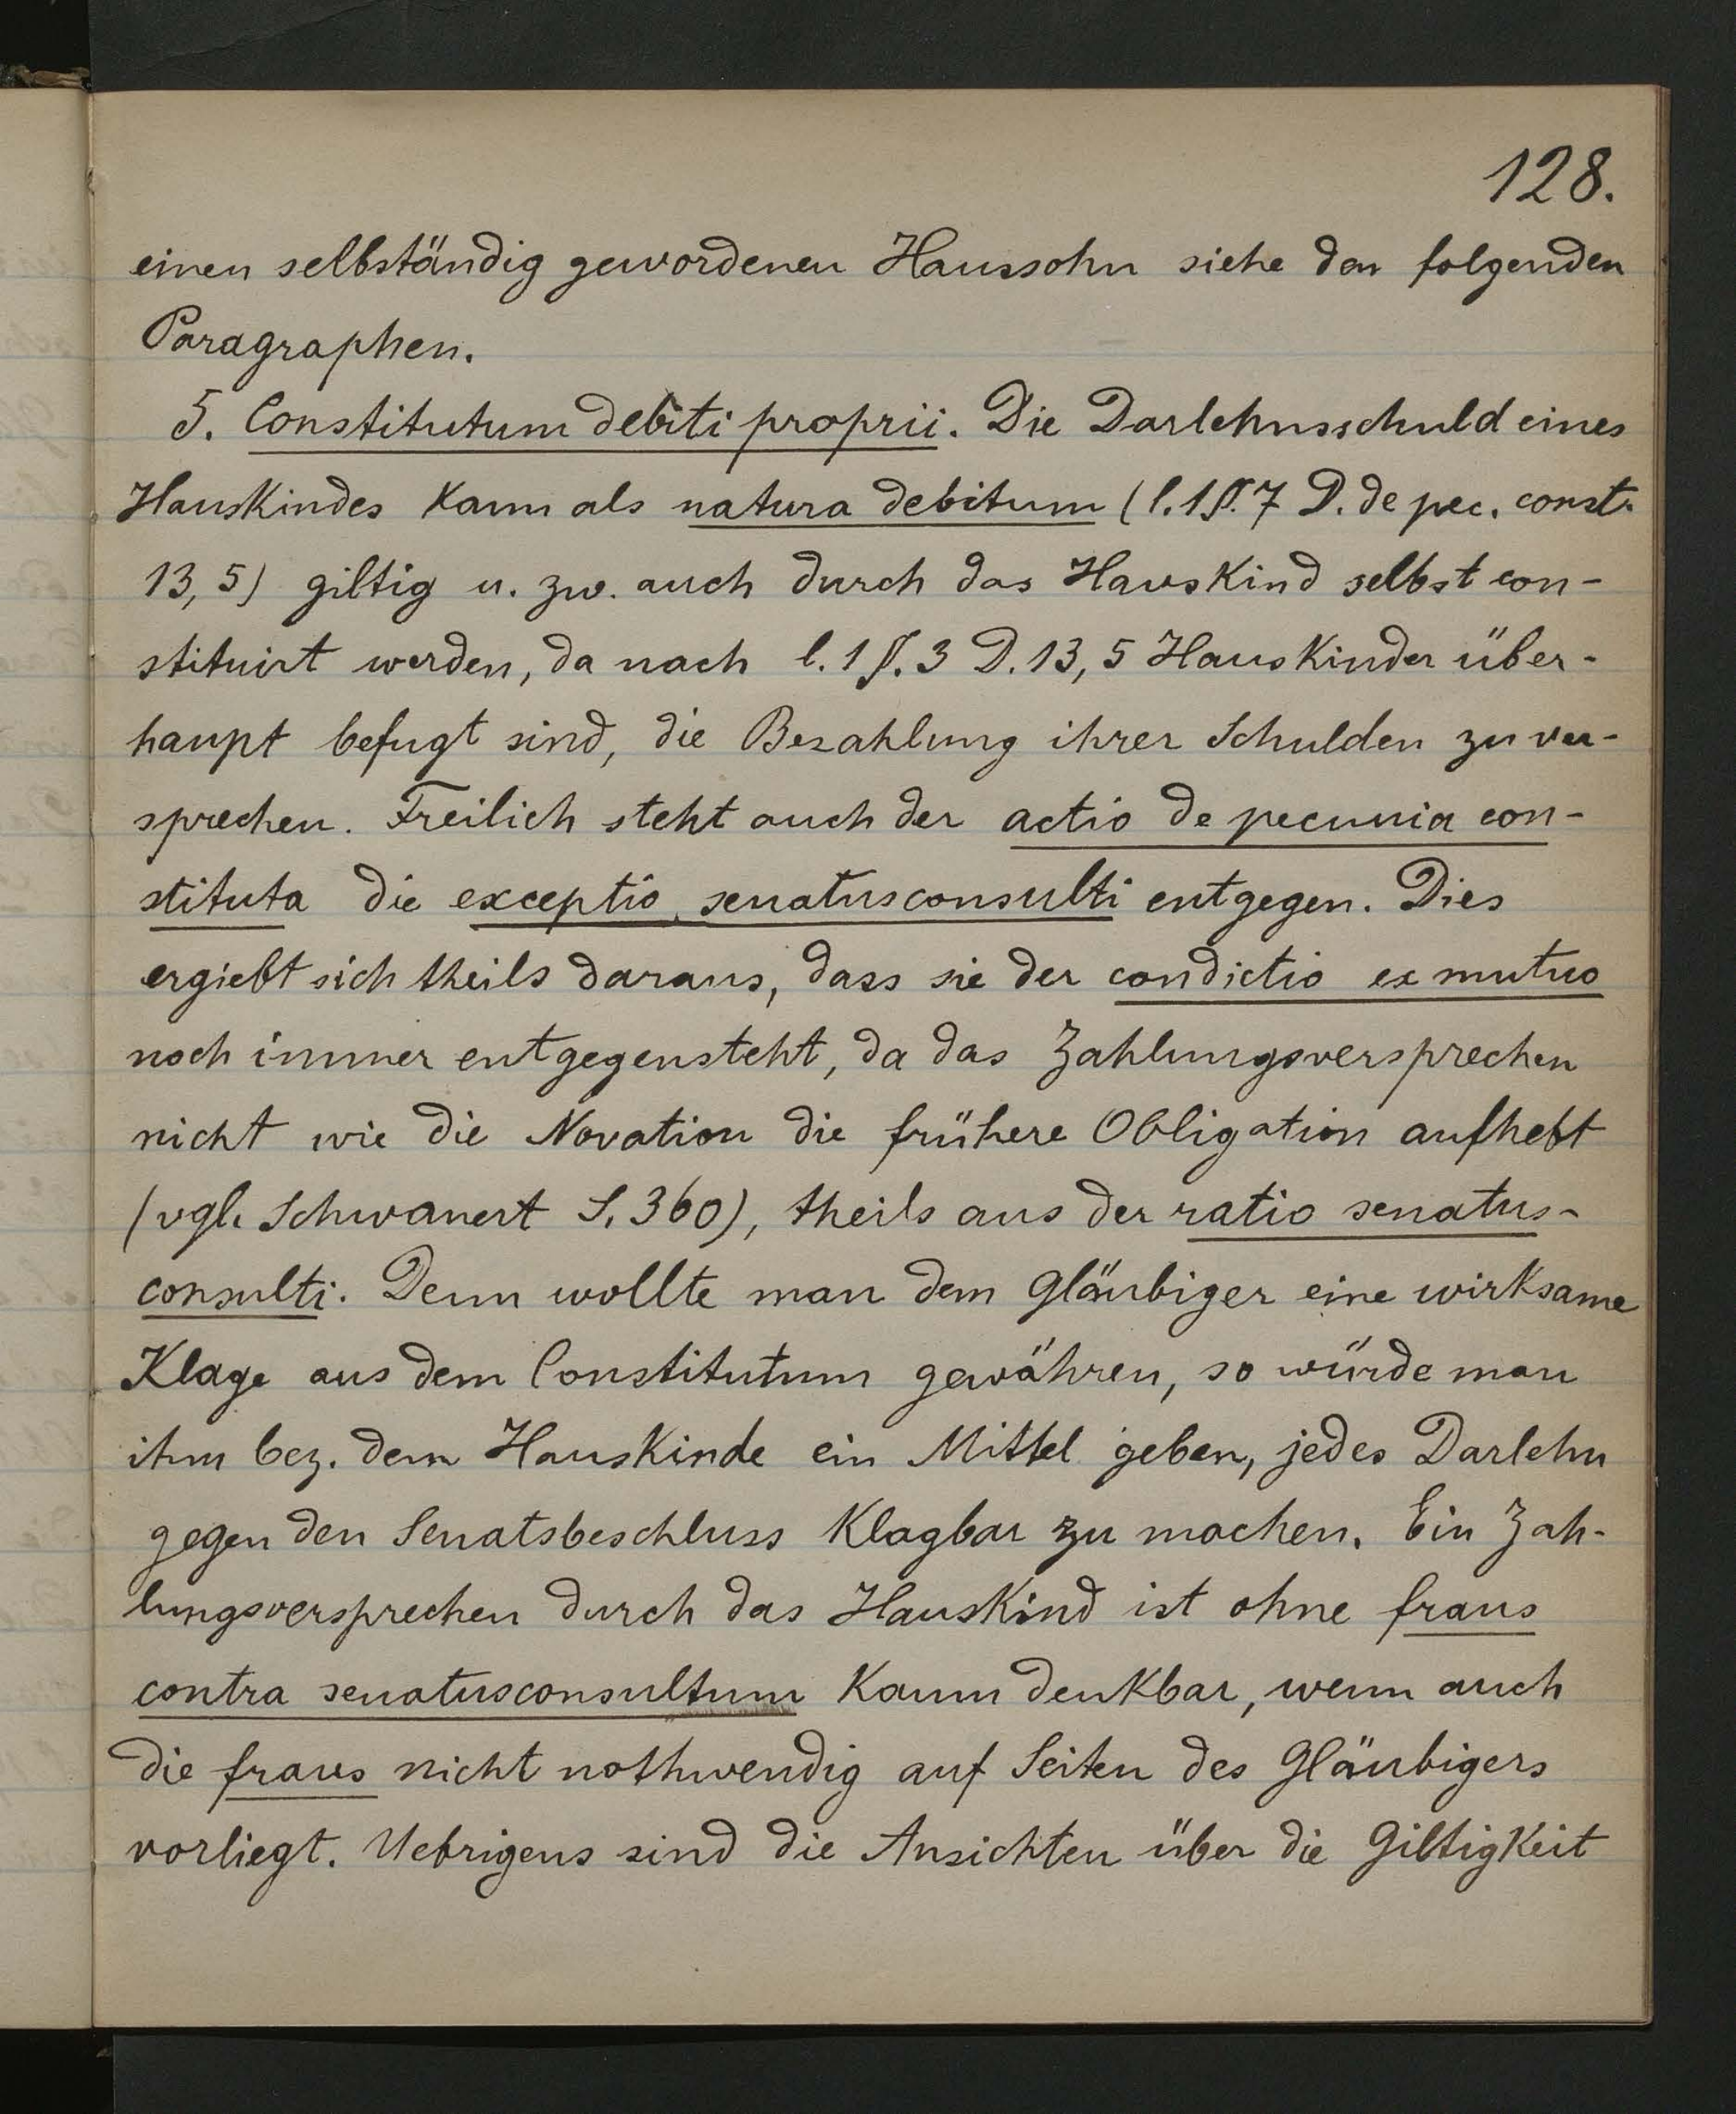 128.
einen selbständig gewordenen Haussohn siehe den folgenden
Paragraphen.
5. Constitutum debiti proprii. Die Darlehnsschuld eines
Hauskindes kann als natura debitum (l. 1 §. 7 D. de pec. const.
13, 5) giltig u. zw. auch durch das Hauskind selbst con-
stituirt werden, da nach l. 1 §. 3 D. 13, 5 Hauskinder über-
haupt befugt sind, die Bezahlung ihrer Schulden zu ver-
sprechen. Freilich steht auch der actio de pecunia con-
stituta die exceptio senatusconsulti entgegen. Dies
ergiebt sich theils daraus, dass sie der condictio ex mutuo
noch immer entgegensteht, da das Zahlungsversprechen
nicht wie die Novation die frühere Obligation aufhebt
(vgl. Schwanert S. 360), theils aus der ratio senatus-
consulti. Denn wollte man dem Gläubiger eine wirksame
Klage aus dem Constitutum gewähren, so würde man
ihm bez. dem Hauskinde ein Mittel geben, jedes Darlehn
gegen den Senatsbeschluss klagbar zu machen. Ein Zah-
lungsversprechen durch das Hauskind ist ohne fraus
contra senatusconsultum kaum denkbar, wenn auch
die fraus nicht nothwendig auf Seiten des Gläubigers
vorliegt. Uebrigens sind die Ansichten über die Giltigkeit